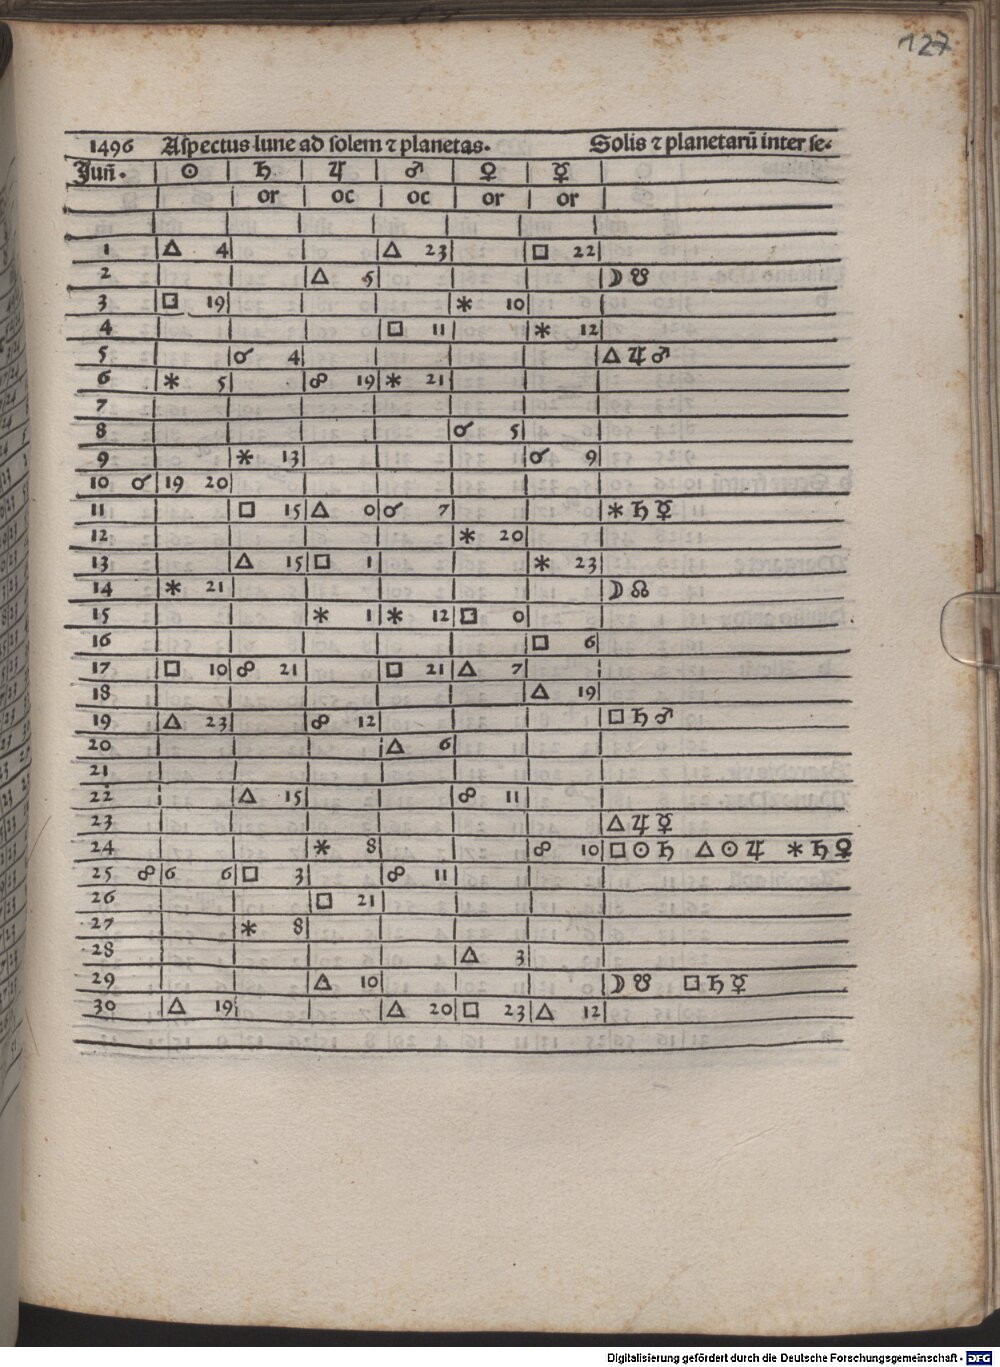 127
1496 Aſpectus lune ad ſolem ⁊ planetas. Solis ⁊ planetarū inter ſe.
Juñ. ☉ ♄ ♃ ♂ ♀ ☿
or oc oc or or
1 △ 4 △ 23 □ 22
2 △ 5 ☽ ☋
3 □ 19 ⚹ 10
4 □ 11 ⚹ 12
5 ☌ 4 △ ♃ ♂
6 ⚹ 5 ☍ 19 ⚹ 21
7
8 ☌ 5
9 ⚹ 13 ☌ 9
10 ☌ 19 20
11 □ 15 △ 0 ☌ 7 ⚹ ♄ ☿
12 ⚹ 20
13 △ 15 □ 1 ⚹ 23
14 ⚹ 21 ☽ ☊
15 ⚹ 1 ⚹ 12 □ 0
16 □ 6
17 □ 10 ☍ 21 □ 21 △ 7
18 △ 19
19 △ 23 ☍ 12 □ ♄ ♂
20 △ 6
21
22 △ 15 ☍ 11
23 △ ♃ ☿
24 ⚹ 8 ☍ 10 □ ☉ ♄ △ ☉ ♃ ⚹ ♄ ♀
25 ☍ 6 6 □ 3 ☍ 11
26 □ 21
27 ⚹ 8
28 △ 3
29 △ 10 ☽ ☋ □ ♄ ☿
30 △ 19 △ 20 □ 23 △ 12
Digitalisierung gefördert durch die Deutsche Forschungsgemeinschaft - DFG